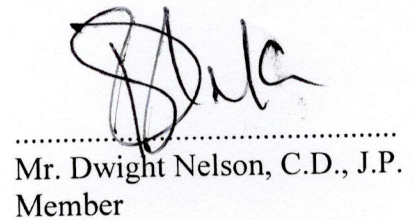 Mr. Dwight Nelson, C.D., J.P.
Member